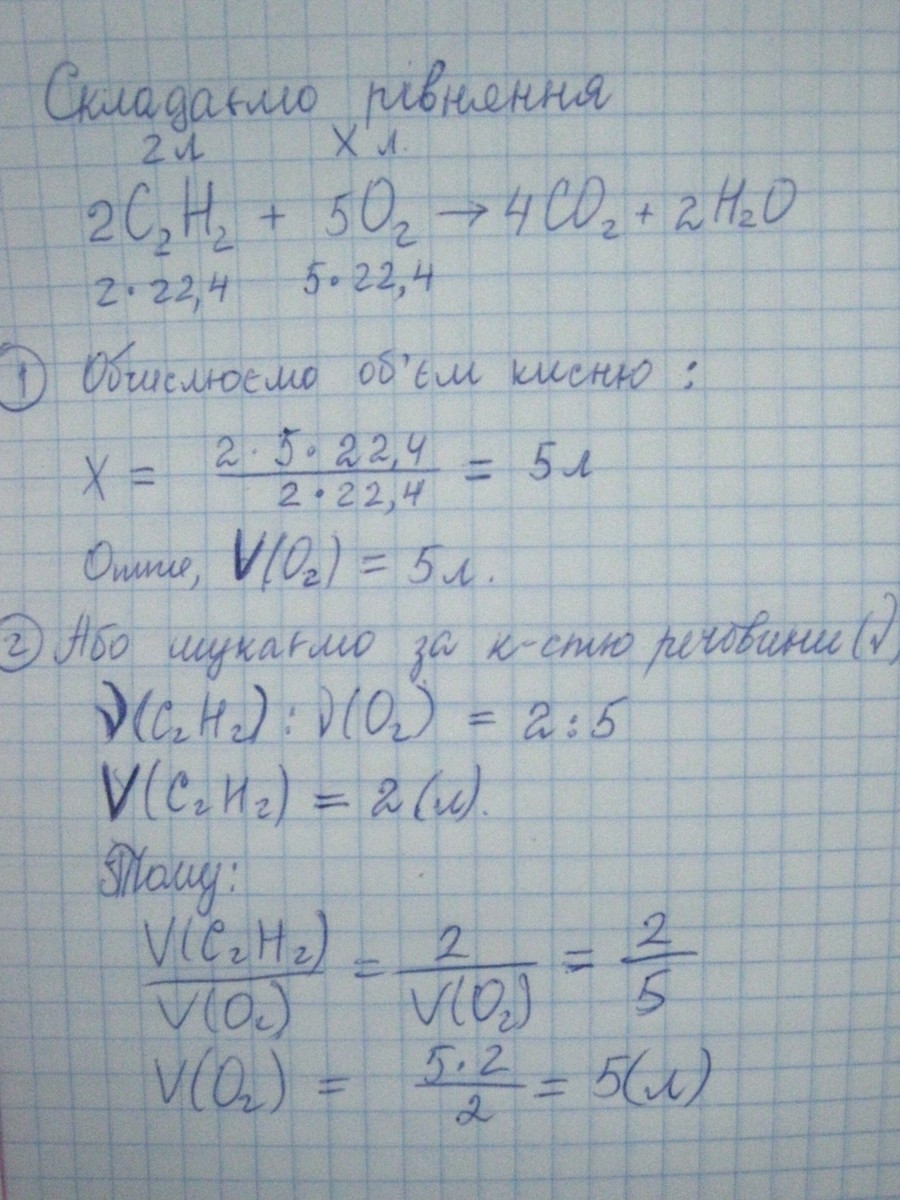 Складаємо рівняння
2л х л.
2C₂H₂ + 5O₂ → 4CO₂ + 2H₂O
2·22,4 5·22,4
① Обчислюємо об'єм кисню :
X = (2·5·22,4)/(2·22,4) = 5л
Отже, V(O₂) = 5л.
② Або шукаємо за к-стю речовини (ν)
ν(C₂H₂) : ν(O₂) = 2:5
V(C₂H₂) = 2(л).
Тому:
V(C₂H₂)/V(O₂) = 2/V(O₂) = 2/5
V(O₂) = (5·2)/2 = 5(л)